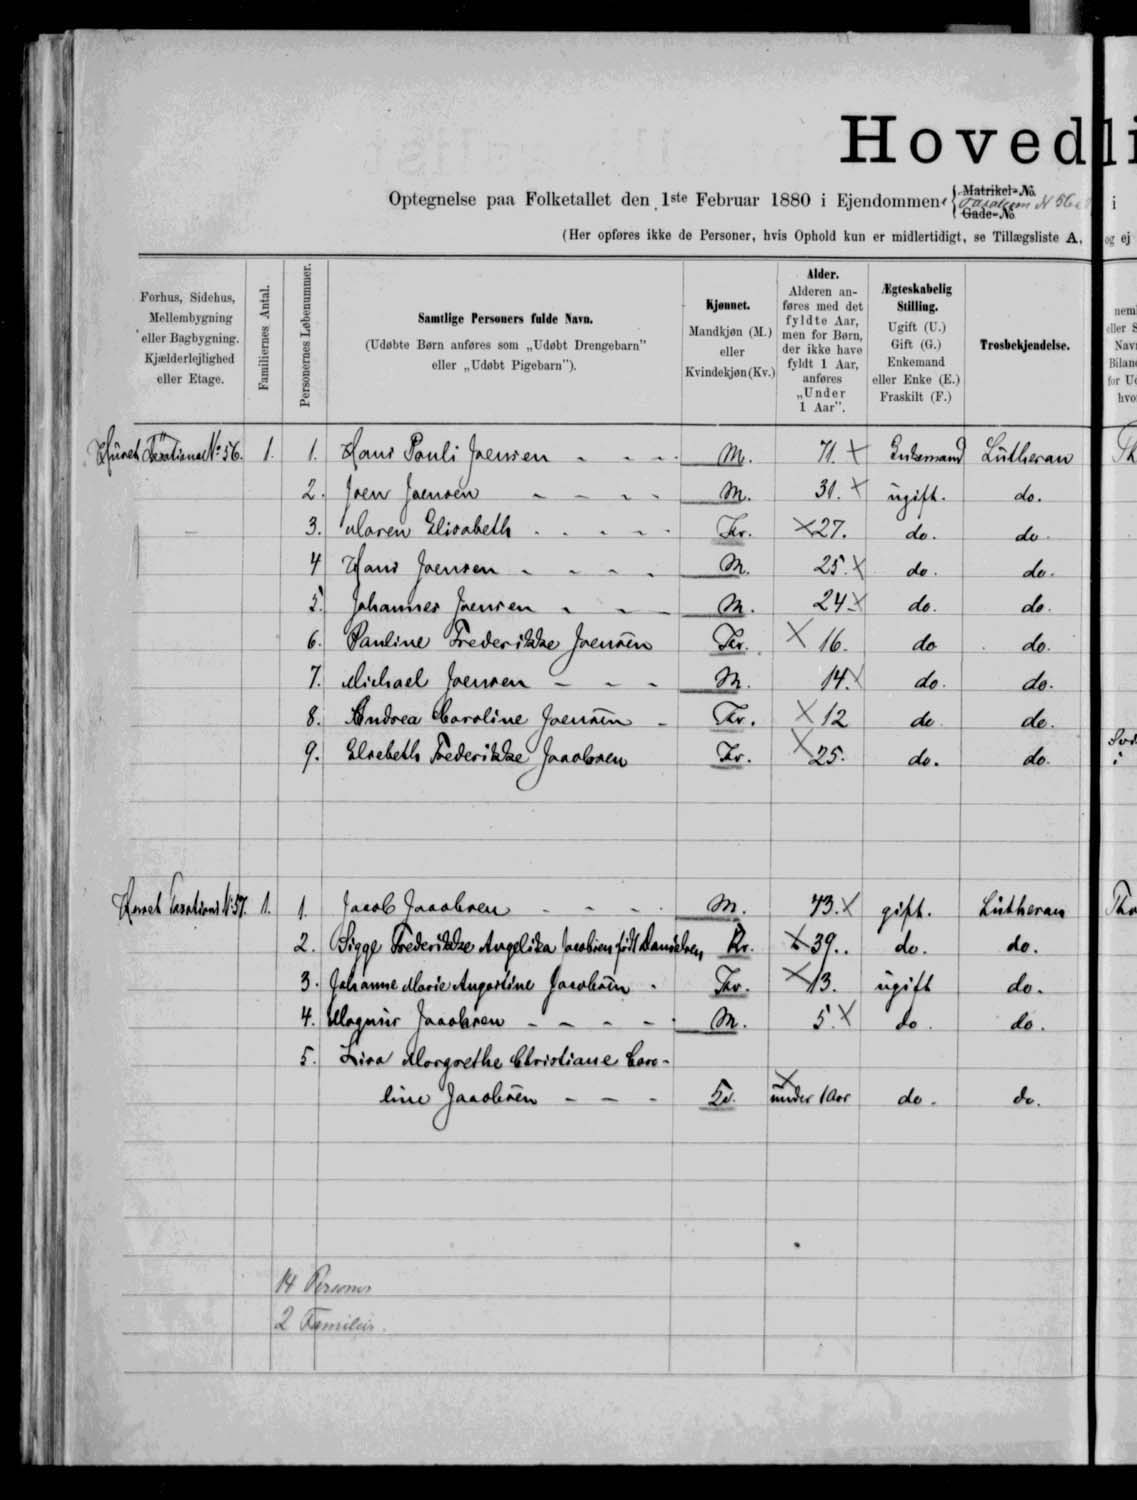 Hovedli
Optegnelse paa Folketallet den 1ste Februar 1880 i Ejendommen { Matrikel-No. Taxations N 56 Gade-No. i
(Her opføres ikke de Personer, hvis Ophold kun er midlertidigt, se Tillægsliste A, og ej
Forhus, Sidehus, Mellembygning eller Bagbygning. Kjælderlejlighed eller Etage.
Familiernes Antal.
Personernes Løbenummer.
Samtlige Personers fulde Navn.
(Udøbte Børn anføres som „Udøbt Drengebarn"
eller „Udøbt Pigebarn").
Kjønnet.
Mandkjøn (M.)
eller
Kvindekjøn (Kv.)
Alder.
Alderen an-
føres med det
fyldte Aar,
men for Børn,
der ikke have
fyldt 1 Aar,
anføres
„Under
1 Aar".
Ægteskabelig
Stilling.
Ugift (U.)
Gift (G.)
Enkemand
eller Enke (E.)
Fraskilt (F.)
Trosbekjendelse.
Huset Taxations No 56. 1. 1. Hans Pauli Joensen - - - M. 71. X Enkemand Lutheran
2. Joen Joensen - - - - M. 31. X ugift. do.
3. Maren Elisabeth - - - - - Kv. X 27. do. do.
4 Hans Joensen - - - - M. 25. X do. do.
5. Johannes Joensen - - - M. 24 X do. do.
6. Pauline Frederikke Joensen Kv. X 16. do do.
7. Michael Joensen - - - M. 14. X do. do.
8. Andrea Caroline Joensen - Kv. X 12 do. do.
9. Elsebeth Frederikke Jacobsen Kv. X 25. do. do.
Huset Taxations No 57. 1. 1. Jacob Jacobsen - - - - M. 43. X gift. Lutheran
2. Sigge Frederikke Angelika Jacobsen født Danielsen Kv. X 39. do. do.
3. Johanne Marie Augustine Jacobsen - Kv. X 13. ugift do.
4. Magnus Jacobsen - - - - - M. 5. X do. do.
5. Lisa Margrethe Christiane Caro-
line Jacobsen - - - Kv. X under 1 Aar do. do.
14 Personer
2 Familier.